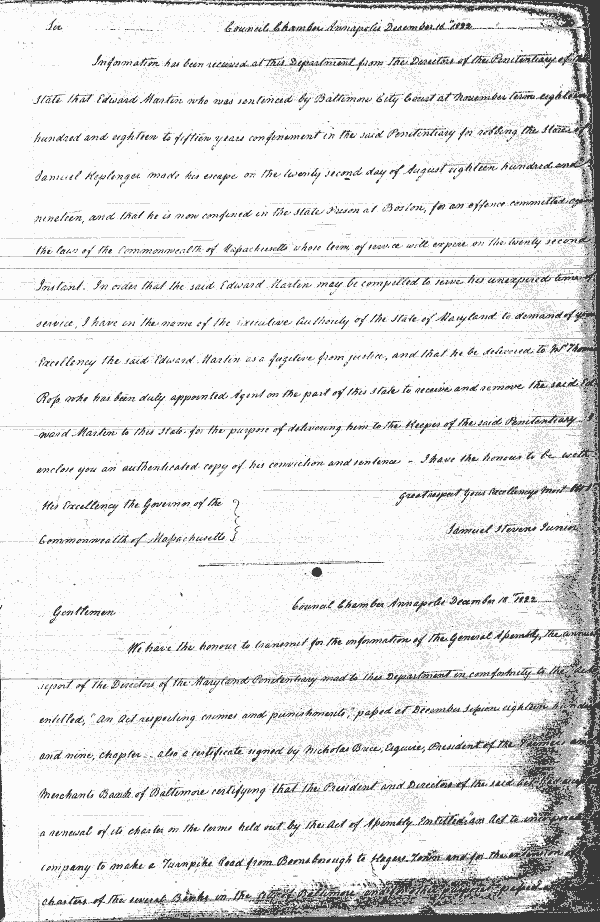 Sir Council Chamber Annapolis December 16th 1822
Information has been received at this Department from the Directors of the Penitentiary of
State that Edward Martin who was sentenced by Baltimore City Court at November term eighteen
hundred and eighteen to fifteen years confinement in the said Penitentiary for robbing the Stores of
Samuel Keplinger made his escape on the twenty second day of August eighteen hundred and
nineteen, and that he is now confined in the State Prison at Boston, for an offence committed
the laws of the Commonwealth of Massachusetts whose term of service will expire on the twenty second
Instant. In order that the said Edward Martin may be compelled to serve his unexpired time of
service, I have in the name of the Executive Authority of the State of Maryland to demand of your
Excellency the said Edward Martin as a fugitive from justice, and that he be delivered to Mr Thomas
Ross who has been duly appointed Agent on the part of this State to receive and remove the said Ed
ward Martin to this State for the purpose of delivering him to the Keeper of the said Penitentiary – I
enclose you an authenticated copy of his conviction and sentence – I have the honour to be with
great respect Your Excellencys Most
His Excellency the Governor of the
Commonwealth of Massachusetts
Samuel Stevens Junior
Gentlemen Council Chamber Annapolis December 18th 1822
We have the honour to transmit for the information of the General Assembly, the annual
report of the Directors of the Maryland Penitentiary mad to this Department in comformity to the
entitled, "An Act respecting crimes and punishments", passed at December Session eighteen hundred
and nine, chapter .. also a certificate signed by Nicholas Brice, Esquire, President of the Farmers and
Merchants Bank of Baltimore certifying that the President and Directors of the said
a renewal of its charter on the terms held out by the Act of Assembly Entitled "an Act to incorporate
company to make a Turnpike Road from Boonsborough to Hagers Town and for the extension
charters of the several Banks in the City of Baltimore and